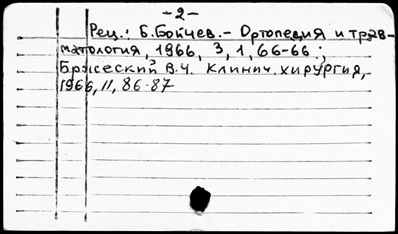 -2-
Рец.: Б. Бойчев.- Ортопедия и трав-
матология, 1966, 3, 1, 66-66.;
В.Ч. Клинич. хирургия,
1966, 11, 86-87